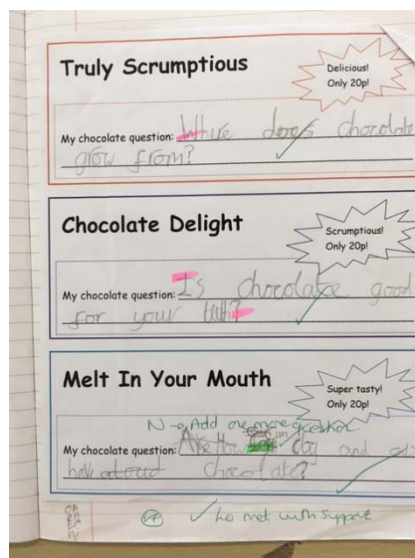 Truly Scrumptious
Delicious!
Only 20p!
My chocolate question: Where does chocolate
grow from?
Chocolate Delight
Scrumptious!
Only 20p!
My chocolate question: Is chocolate good
for your teeth?
Melt In Your Mouth
Super tasty!
Only 20p!
N → Add one more question.
My chocolate question: dog and
chocolate?
✓ LO met with support